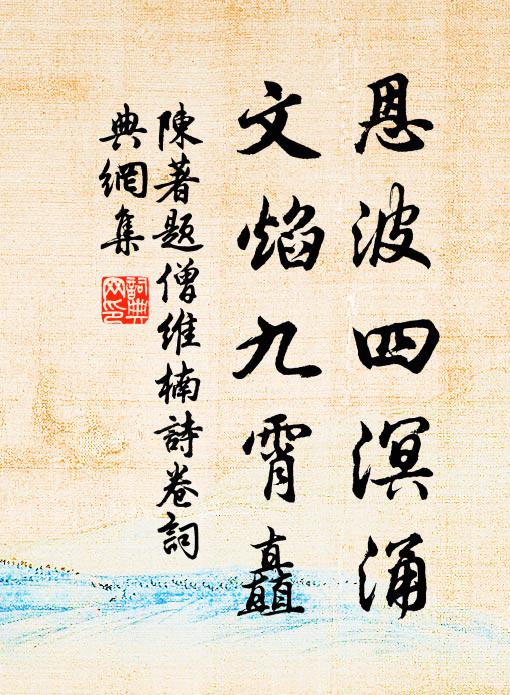 恩波四溟涌
文焰九霄矗
陳著題僧维楠詩卷词
典網集
詞典网印